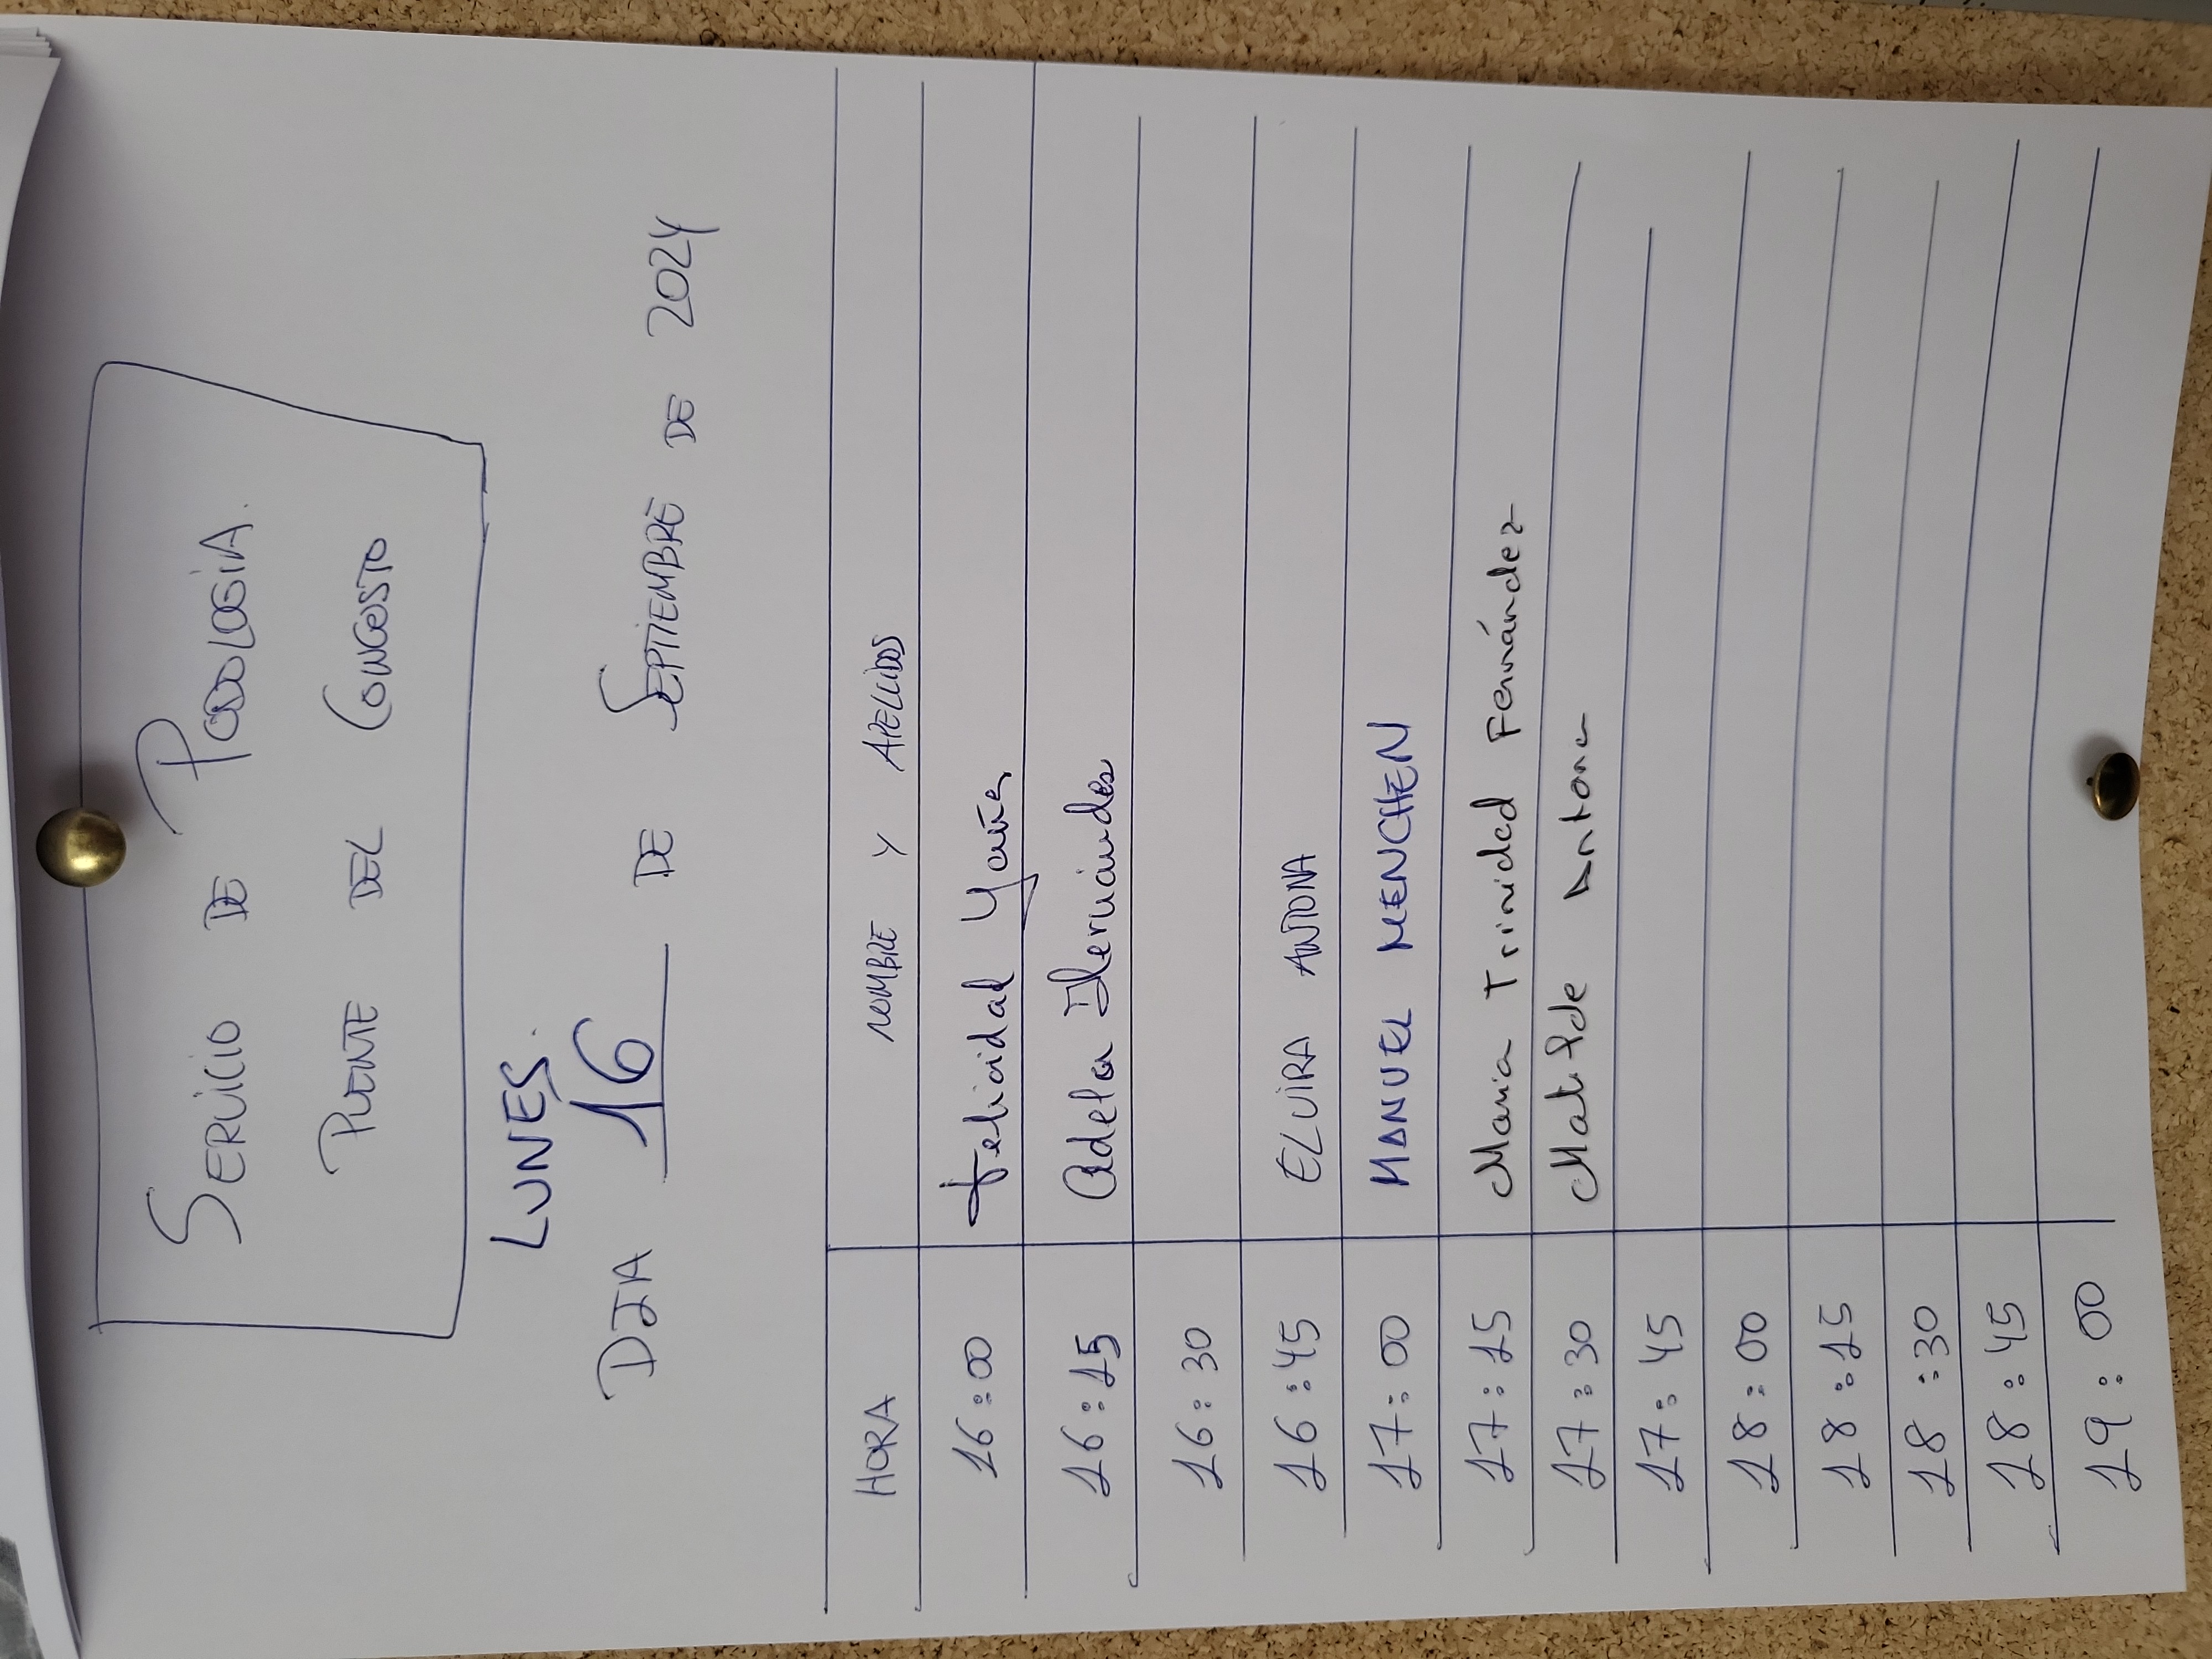 SERVICIO DE PODOLOGIA.
PUENTE DEL CONGOSTO
LUNES.
DIA 16 DE SEPTIEMBRE DE 2024
HORA NOMBRE Y APELLIDOS
16:00 Felicidad Yañez
16:15 Adela Hernández
16:30
16:45 ELVIRA ANTONA
17:00 MANUEL MENCHEN
17:15 Maria Trinidad Fernández
17:30 Matilde Antona
17:45
18:00
18:15
18:30
18:45
19:00